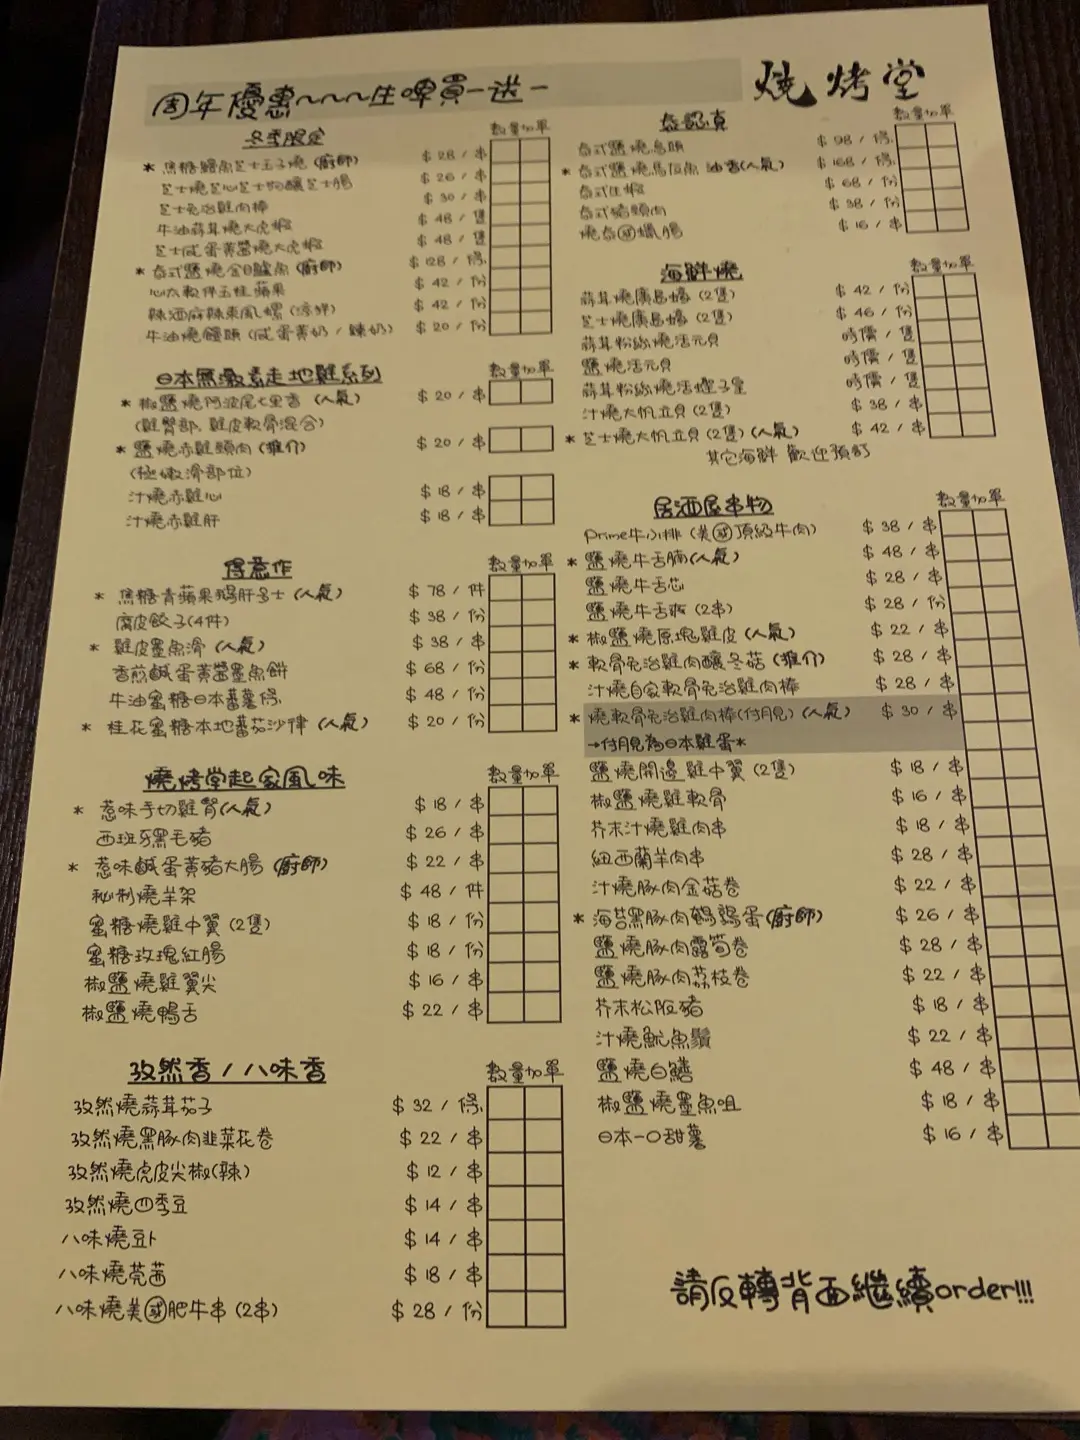 周年優惠~~~生啤買一送一
燒烤堂
冬季限定
數量加單
* 焦糖鰻魚芝士玉子燒 (廚師) $ 28 / 串
芝士燒芝心芝士狗釀芝士腸 $ 26 / 串
芝士免治雞肉棒 $ 30 / 串
牛油蒜茸燒大虎蝦 $ 48 / 隻
芝士咸蛋黃醬燒大虎蝦 $ 48 / 隻
* 泰式鹽燒金目鱸魚 (廚師) $ 128 / 條
心太軟伴玉桂蘋果 $ 42 / 份
辣酒麻辣東風螺 (涼拌) $ 42 / 份
牛油燒饅頭 (咸蛋黃奶 / 煉奶) $ 20 / 份
日本無激素走地雞系列
數量加單
* 椒鹽燒阿波尾七里香 (人氣) $ 20 / 串
(雞臀部, 雞皮軟骨混合)
* 鹽燒赤雞頸肉 (推介) $ 20 / 串
(極嫩滑部位)
汁燒赤雞心 $ 18 / 串
汁燒赤雞肝 $ 18 / 串
得意作
數量加單
* 焦糖青蘋果鵝肝多士 (人氣) $ 78 / 件
腐皮餃子(4件) $ 38 / 份
* 雞皮墨魚滑 (人氣) $ 38 / 串
香煎鹹蛋黃醬墨魚餅 $ 68 / 份
牛油蜜糖日本蕃薯條 $ 48 / 份
* 桂花蜜糖本地蕃茄沙律 (人氣) $ 20 / 份
燒烤堂起家風味
數量加單
* 惹味手切雞腎(人氣) $ 18 / 串
西班牙黑毛豬 $ 26 / 串
* 惹味鹹蛋黃豬大腸 (廚師) $ 22 / 串
秘制燒羊架 $ 48 / 件
蜜糖燒雞中翼 (2隻) $ 18 / 份
蜜糖玫瑰紅腸 $ 18 / 份
椒鹽燒雞翼尖 $ 16 / 串
椒鹽燒鴨舌 $ 22 / 串
孜然香 / 八味香
數量加單
孜然燒蒜茸茄子 $ 32 / 條
孜然燒黑豚肉韭菜花卷 $ 22 / 串
孜然燒虎皮尖椒(辣) $ 12 / 串
孜然燒四季豆 $ 14 / 串
八味燒豆卜 $ 14 / 串
八味燒莞茜 $ 18 / 串
八味燒美國肥牛串 (2串) $ 28 / 份
泰認真
數量加單
泰式鹽燒烏頭 $ 98 / 條
* 泰式鹽燒馬友魚 油香(人氣) $ 168 / 條
泰式生蝦 $ 68 / 份
泰式豬頸肉 $ 38 / 份
燒泰國蠟腸 $ 16 / 串
海鮮燒
數量加單
蒜茸燒廣島蠔 (2隻) $ 42 / 份
芝士燒廣島蠔 (2隻) $ 46 / 份
蒜茸粉絲燒活元貝 時價 / 隻
鹽燒活元貝 時價 / 隻
蒜茸粉絲燒活蟶子皇 時價 / 隻
汁燒大帆立貝 (2隻) $ 38 / 串
* 芝士燒大帆立貝 (2隻) (人氣) $ 42 / 串
其它海鮮 歡迎預訂
居酒屋串物
數量加單
Prime牛小排 (美國頂級牛肉) $ 38 / 串
* 鹽燒牛舌腩(人氣) $ 48 / 串
鹽燒牛舌芯 $ 28 / 串
鹽燒牛舌爽 (2串) $ 28 / 份
* 椒鹽燒原塊雞皮 (人氣) $ 22 / 串
* 軟骨免治雞肉釀冬菇 (推介) $ 28 / 串
汁燒自家軟骨免治雞肉棒 $ 28 / 串
* 燒軟骨免治雞肉棒(付月見) (人氣) $ 30 / 串
→付月見為日本雞蛋*
鹽燒開邊雞中翼 (2隻) $ 18 / 串
椒鹽燒雞軟骨 $ 16 / 串
芥末汁燒雞肉串 $ 18 / 串
紐西蘭羊肉串 $ 28 / 串
汁燒豚肉金菇卷 $ 22 / 串
* 海苔黑豚肉鵪鶉蛋(廚師) $ 26 / 串
鹽燒豚肉露筍卷 $ 28 / 串
鹽燒豚肉荔枝卷 $ 22 / 串
芥末松阪豬 $ 18 / 串
汁燒魷魚鬚 $ 22 / 串
鹽燒白鱔 $ 48 / 串
椒鹽燒墨魚咀 $ 18 / 串
日本一口甜薯 $ 16 / 串
請反轉背面繼續order!!!